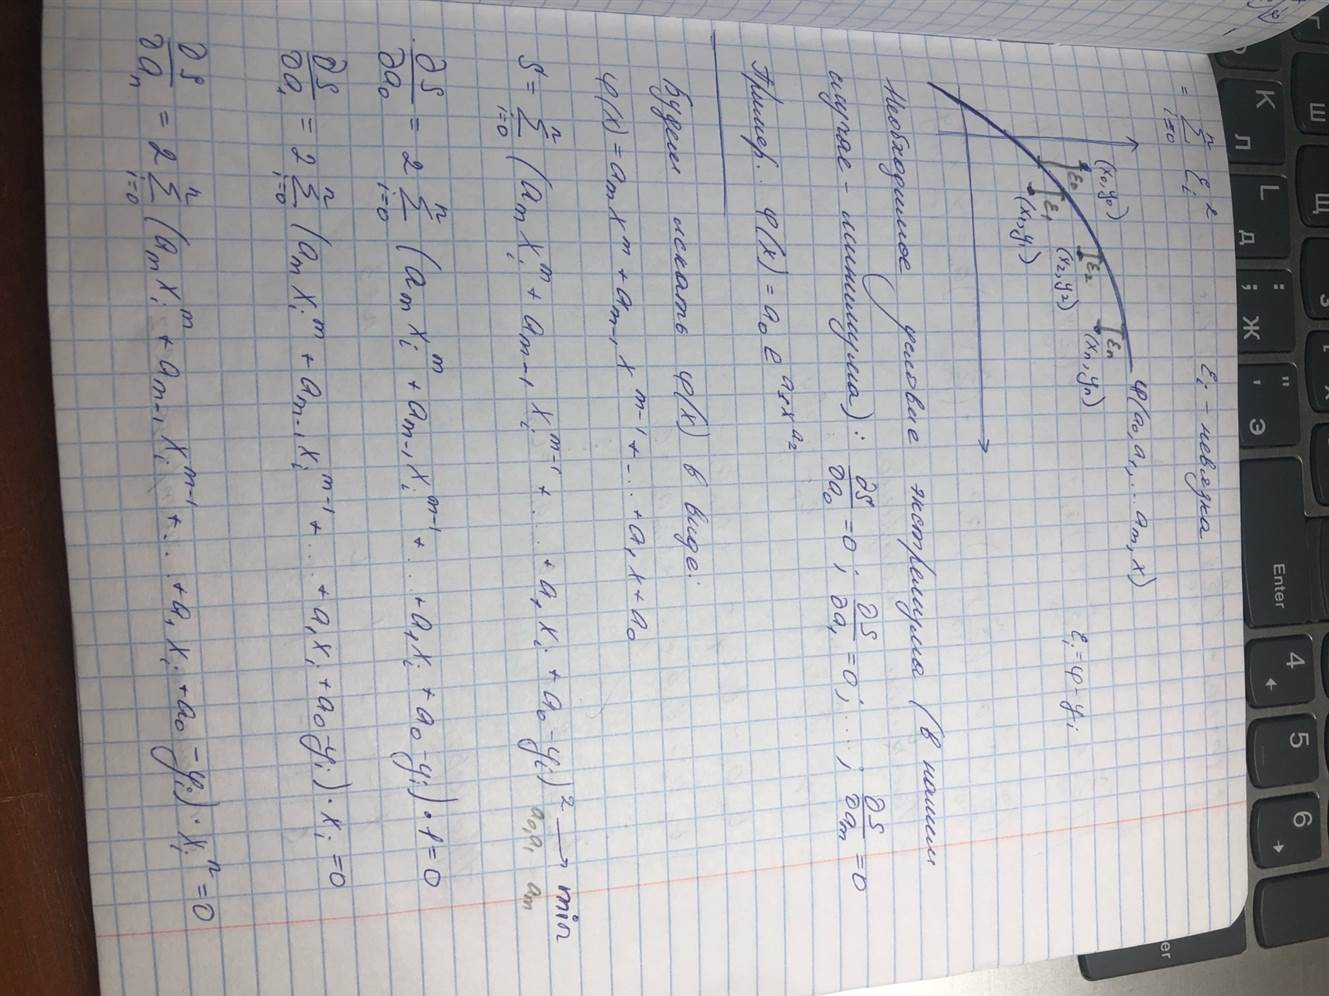 = Σ εᵢ² εᵢ - невязка
i=0
n
φ(a₀, a₁, ... aₘ, x)
εᵢ = φ - yᵢ
(x₀, y₀)
ε₀
ε₁
(x₁, y₁)
ε₂
(x₂, y₂)
εₙ
(xₙ, yₙ)
Необходимое условие экстремума (в нашем
случае - минимума): ∂S/∂a₀ = 0; ∂S/∂a₁ = 0; ...; ∂S/∂aₘ = 0
Пример: φ(x) = a₀ e^(a₁x^(a₂))
Будем искать φ(x) в виде:
φ(x) = aₘ x^m + aₘ₋₁ x^(m-1) + ... + a₁ x + a₀
S = Σ(i=0..n) (aₘ xᵢ^m + aₘ₋₁ xᵢ^(m-1) + ... + a₁ xᵢ + a₀ - yᵢ)² → min
a₀, a₁ aₘ
∂S/∂a₀ = 2 Σ(i=0..n) (aₘ xᵢ^m + aₘ₋₁ xᵢ^(m-1) + ... + a₁ xᵢ + a₀ - yᵢ) · 1 = 0
∂S/∂a₁ = 2 Σ(i=0..n) (aₘ xᵢ^m + aₘ₋₁ xᵢ^(m-1) + ... + a₁ xᵢ + a₀ - yᵢ) · xᵢ = 0
∂S/∂aₙ = 2 Σ(i=0..n) (aₘ xᵢ^m + aₘ₋₁ xᵢ^(m-1) + ... + a₁ xᵢ + a₀ - yᵢ) · xᵢ^n = 0
K Л
L Д
: ; Ж
" ' Э
Enter
4
5
6
Ш
Щ